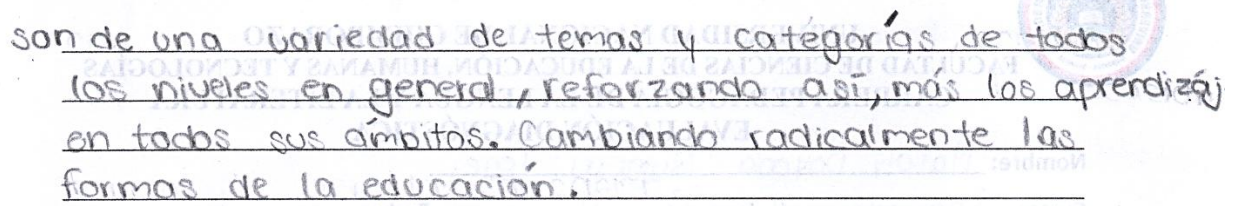 son de una variedad de temas y categorías de todos
los niveles en general, reforzando así, más los aprendizáj
en todos sus ámbitos. Cambiando radicalmente las
formas de la educación.